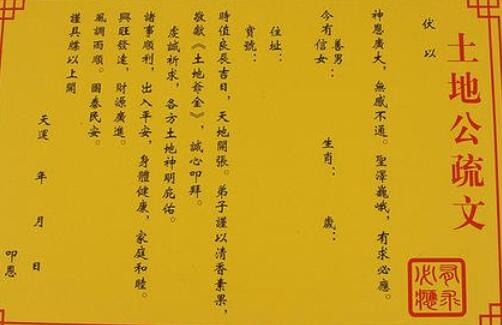 土地公疏文
有求必應
伏以
神恩廣大，無感不通。聖澤巍峨，有求必應。
今有善男信女： 生肖： 歲：
住址：
寶號：
時值良辰吉日，天地開張。弟子謹以清香素果，
敬獻《土地爺金》，誠心叩拜。
虔誠祈求，各方土地神明庇佑。
諸事順利，出入平安，身體健康，家庭和睦。
興旺發達，財源廣進。
風調雨順。國泰民安。
謹具牒以上聞
天運 年 月 日
叩恩